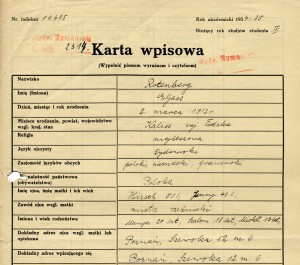 Nr. indeksu 14495
Rok akademicki 1934-35
Bieżący rok studjów studenta IV
Wydz. Humanist.
2319
Karta wpisowa
Wydz. Huma
(Wypełnić pismem wyraźnem i czytelnem)
Nazwisko Rotenberg
Imię (imiona) Eljasz
Dzień, miesiąc i rok urodzenia 2. marca
Miejsce urodzenia, powiat, województwo Kalisz woj. Łódzkie
wzgl. kraj, stan
Religja mojżeszowa
Język ojczysty żydowski
Znajomość języków obcych polski niemiecki, francuski
należność państwowa Polska
(obywatelstwo)
Imię ojca, imię matki i ich wiek Hirsch 51 l.,
Zawód ojca wzgl. matki
Imiona i wiek rodzeństwa
Dokładny adres ojca wzgl. matki Poznań, Szewska 12 m. 6
lub opiekuna
Dokładny adres wpisującego się Poznań, Szewska 12 m. 6